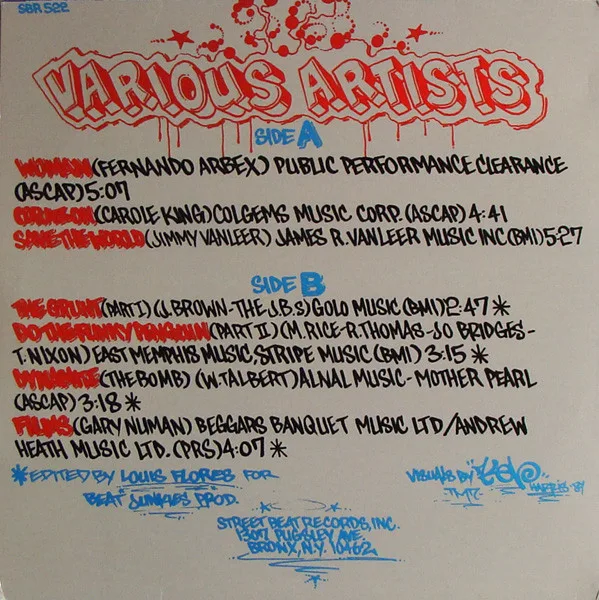 SBR 522
VARIOUS ARTISTS
SIDE A
WOMAN (FERNANDO ARBEX) PUBLIC PERFORMANCE CLEARANCE
(ASCAP) 5:07
CORAZON (CAROLE KING) COLGEMS MUSIC CORP. (ASCAP) 4:41
SAVE THE WORLD (JIMMY VANLEER) JAMES R. VANLEER MUSIC INC (BMI) 5:27
SIDE B
THE GRUNT (PART I) (J. BROWN-THE J.B.s) GOLO MUSIC (BMI) 2:47 *
DO THE FUNKY PENGUIN (PART II) (M. RICE-R. THOMAS-JO BRIDGES-
T. NIXON) EAST MEMPHIS MUSIC, STRIPE MUSIC (BMI) 3:15 *
DYNAMITE (THE BOMB) (W. TALBERT) ALNAL MUSIC - MOTHER PEARL
(ASCAP) 3:18 *
FILMS (GARY NUMAN) BEGGARS BANQUET MUSIC LTD/ANDREW
HEATH MUSIC LTD. (PRS) 4:07 *
* EDITED BY LOUIS FLORES FOR
BEAT "JUNKIES" PROD.
VISUALS BY
TMT.
STREET BEAT RECORDS, INC.
1307 PUGSLEY AVE.
BRONX, N.Y. 10462